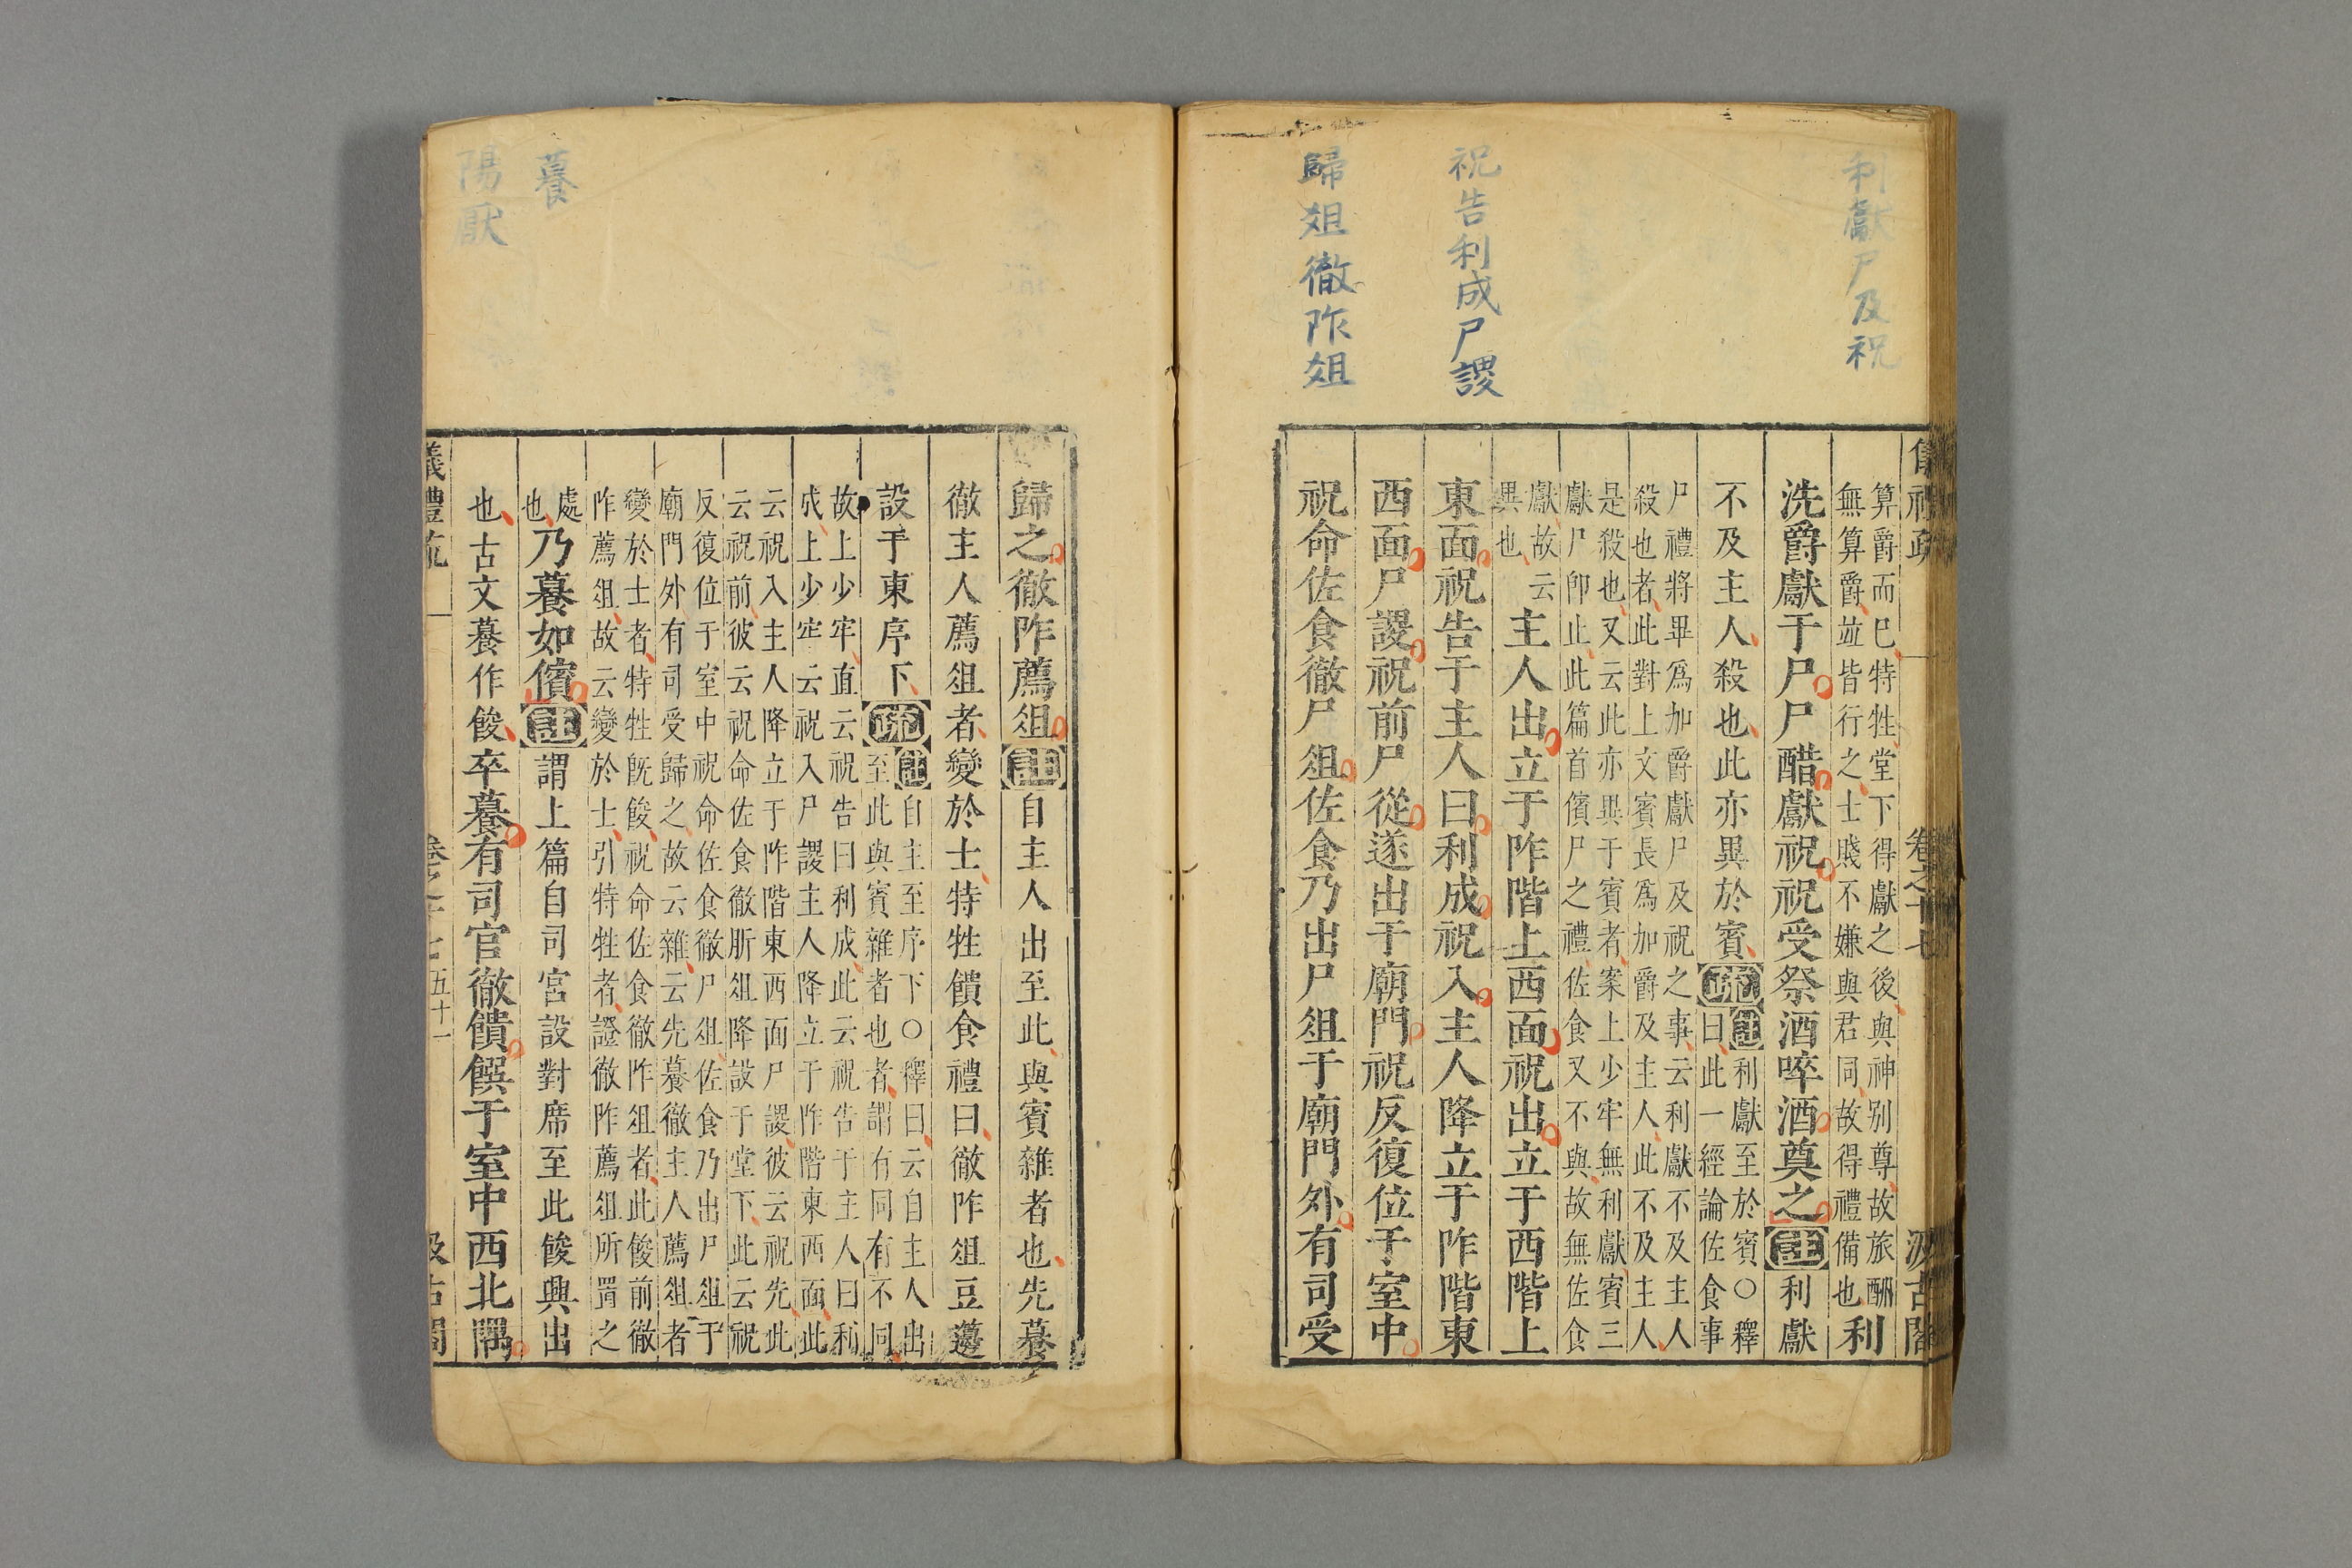 利獻尸及祝
祝告利成尸謖
歸俎徹阼俎
算爵而已特牲堂下得獻之後與神别尊故旅酬
無算爵並皆行之士賤不嫌與君同故得禮備也
利
洗爵獻于尸尸酢獻祝祝受祭酒啐酒奠之註利獻
不及主人殺也此亦異於賓疏註利獻至於賓○釋
曰此一經論佐食事
尸禮將畢爲加爵獻尸及祝之事云利獻不及主人
殺也者此對上文賓長爲加爵及主人此不及主人
是殺也又云此亦異于賓者案上少牢無利獻賓三
獻尸卽止此篇首儐尸之禮佐食又不與故無佐食
獻故云
異也
主人出立于阼階上西面祝出立于西階上
東面祝告于主人曰利成祝入主人降立于阼階東
西面尸謖祝前尸從遂出于廟門祝反復位于室中
祝命佐食徹尸俎佐食乃出尸俎于廟門外有司受
歸之徹阼薦俎註自主人出至此與賓雜者也先䉵
徹主人薦俎者變於士特牲饋食禮曰徹阼俎豆籩
設于東序下疏註自主至序下○釋曰云自主人出
至此與賓雜者也者謂有同有不同
故上少牢直云祝告曰利成此云祝告于主人曰利
成上少牢云祝入尸謖主人降立于阼階東西面此
云祝入主人降立于阼階東西面尸謖彼云祝先此
云祝前彼云祝命佐食徹肵俎降設于堂下此云祝
反復位于室中祝命佐食徹尸俎佐食乃出尸俎于
廟門外有司受歸之故云雜云先䉵徹主人薦俎者
變於士者特牲旣餕祝命佐食徹阼俎者此餕前徹
阼薦俎故云變於士引特牲者證徹阼薦俎所置之
處
也
乃䉵如儐註謂上篇自司宮設對席至此餕興出
也古文䉵作餕卒䉵有司官徹饋饌于室中西北隅
五十一
䉵
陽厭